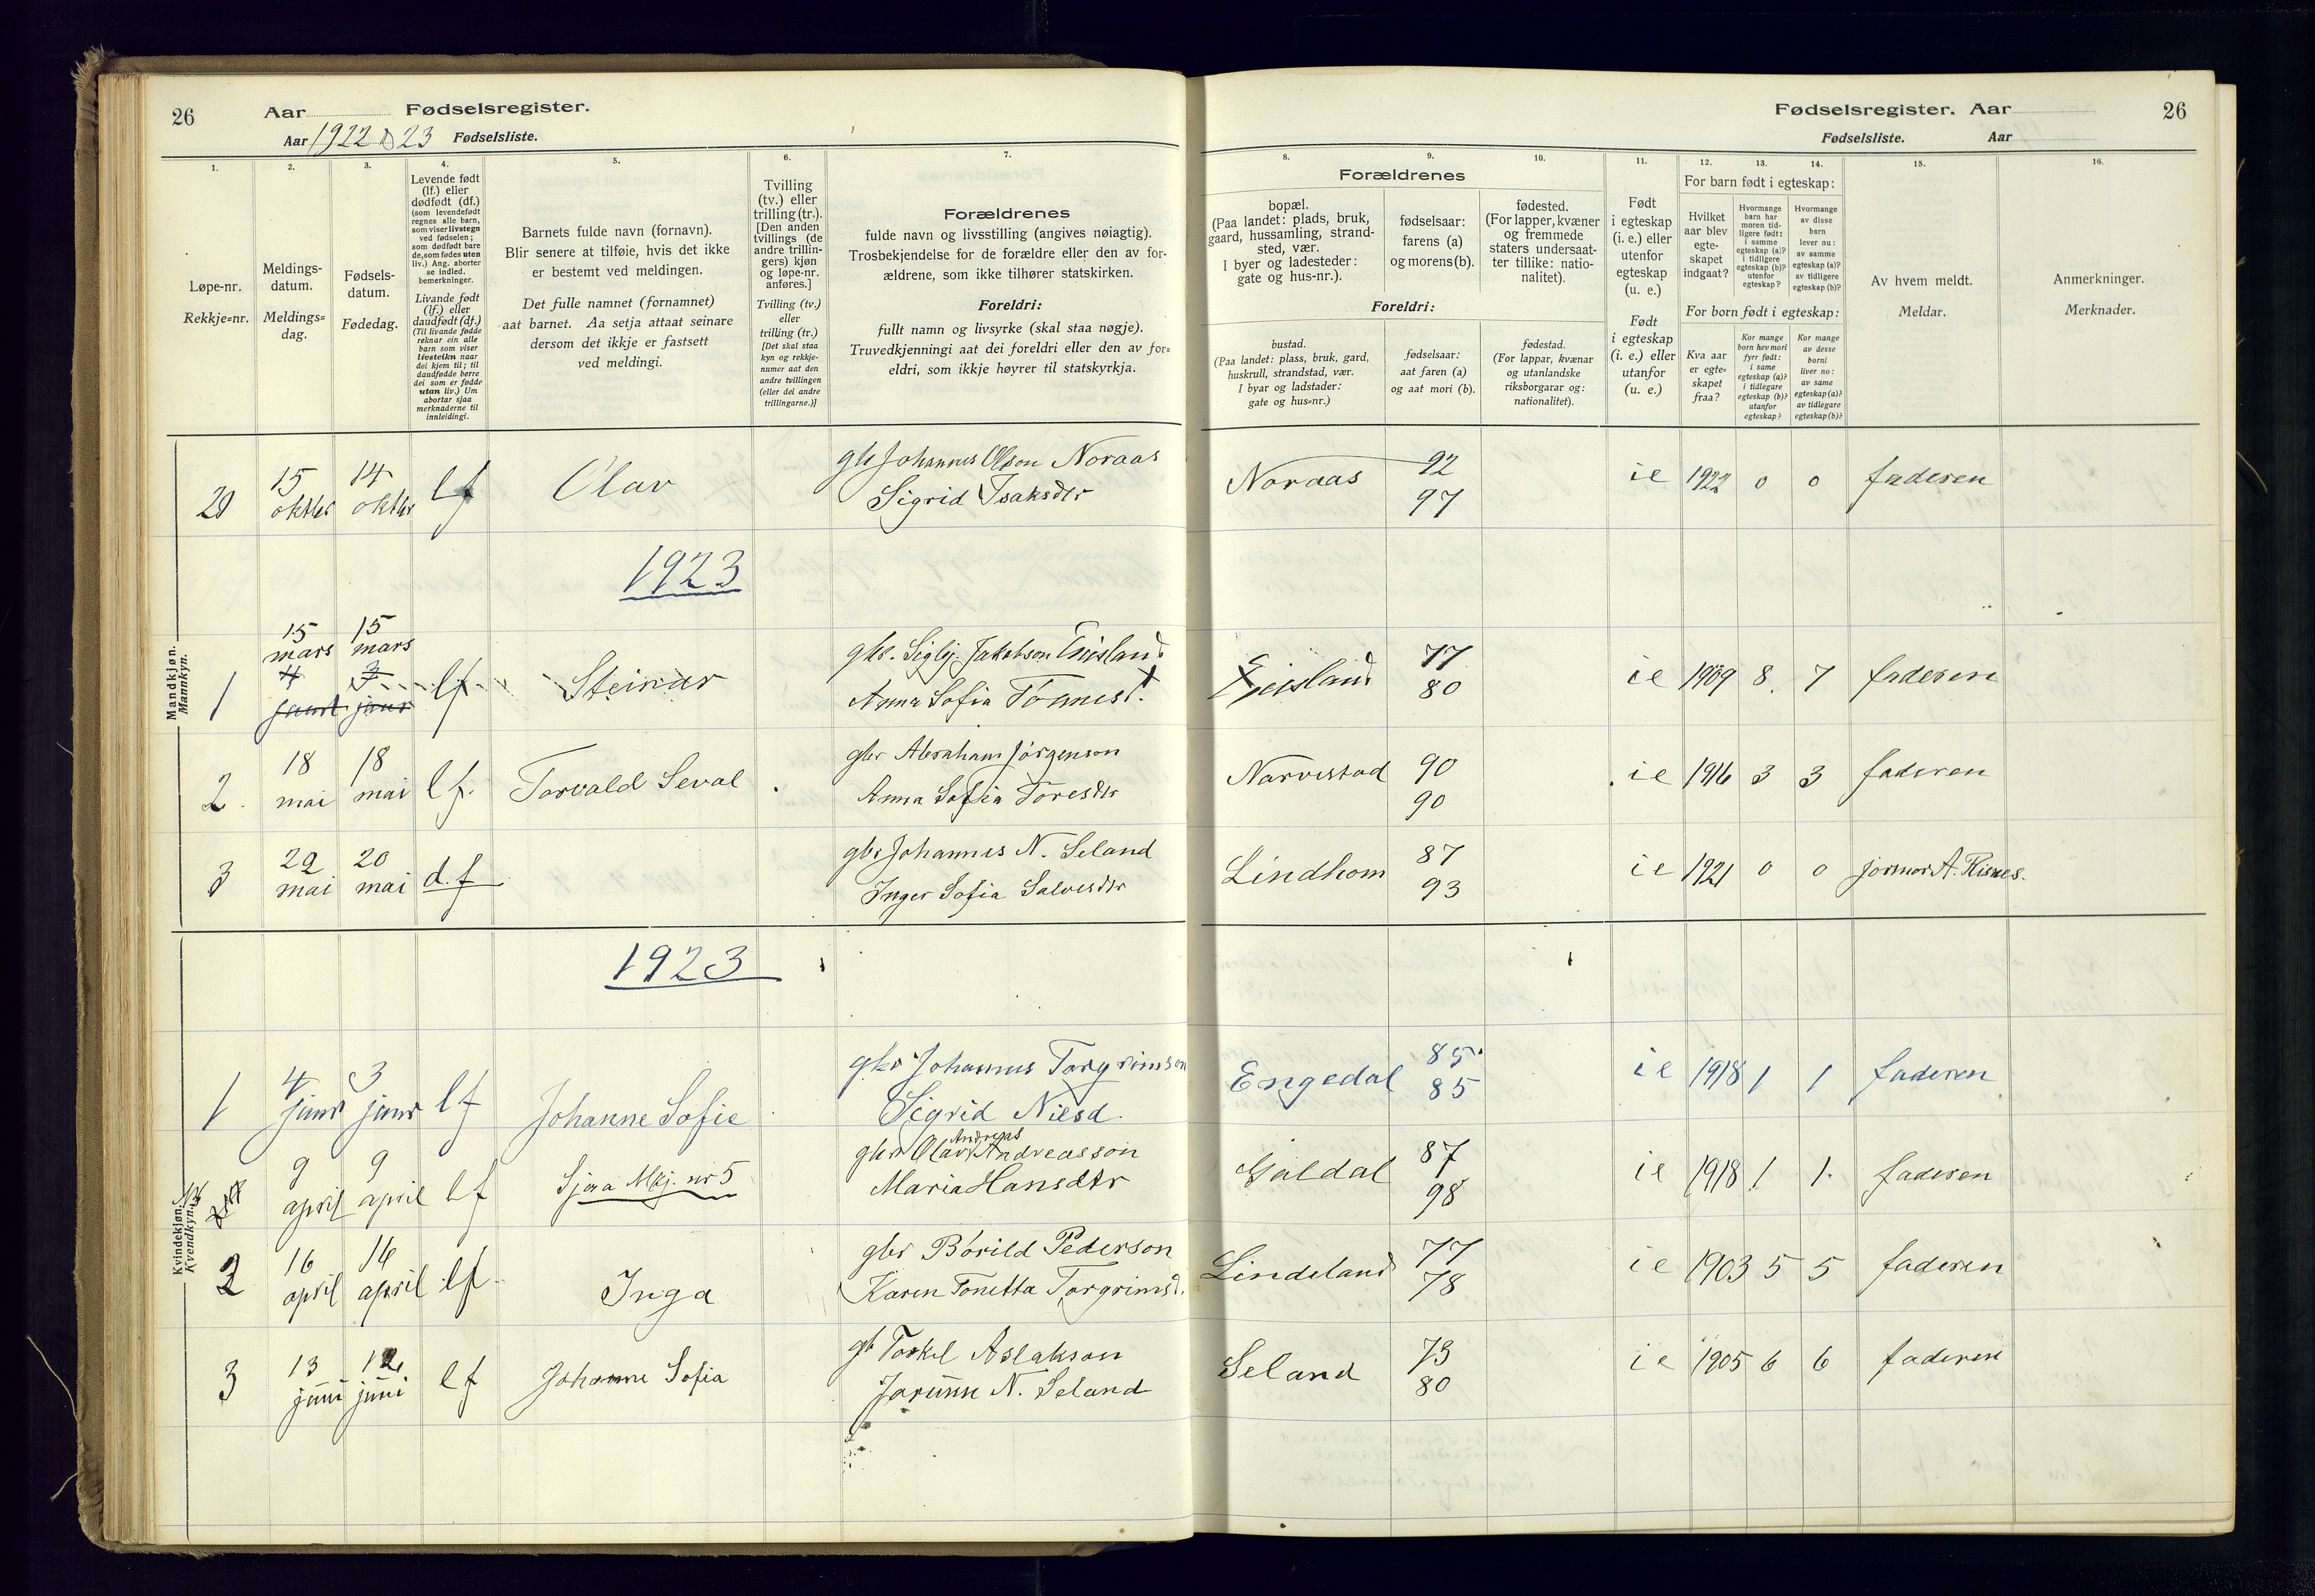 26
Aar
Fødselsregister.
Aar 1922 & 23 Fødselsliste.
1.
2.
3.
4.
5.
6.
7.
Løpe-nr.
Rekkje=nr.
Meldings-
datum.
Meldings=
dag.
Fødsels-
datum.
Fødedag.
Levende født
(lf.) eller
dødfødt (df.)
(som levendefødt
regnes alle barn,
som viser livstegn
ved fødselen;
som dødfødt bare
de, som fødes uten
liv.) Ang. aborter
se indled.
bemerkninger.
Livande født
(lf.) eller
daudfødt (df.)
(Til livande fødde
reknar ein alle
barn som viser
livsteikn naar
dei kjem til; til
daudfødde berre
dei som er fødde
utan liv.) Um
abortar sjaa
merknaderne til
innleidingi.
Barnets fulde navn (fornavn).
Blir senere at tilføie, hvis det ikke
er bestemt ved meldingen.
Det fulle namnet (fornamnet)
aat barnet. Aa setja attaat seinare
dersom det ikkje er fastsett
ved meldingi.
Tvilling
(tv.) eller
trilling (tr.).
[Den anden
tvillings (de
andre trillin-
gers) kjøn
og løpe-nr.
anføres.]
Tvilling (tv.)
eller
trilling (tr.)
[Det skal staa
kyn og rekkje-
numer aat den
andre tvillingen
(eller dei andre
trillingarne.)]
Forældrenes
fulde navn og livsstilling (angives nøiagtig).
Trosbekjendelse for de forældre eller den av for-
ældrene, som ikke tilhører statskirken.
Foreldri:
fullt namn og livsyrke (skal staa nøgje).
Truvedkjenningi aat dei foreldri eller den av for=
eldri, som ikkje høyrer til statskyrkja.
Mandkjøn.
Mannkyn.
20 15 oktbr 14 oktbr lf Olav
gbr Johannes Olson Noraas
Sigrid Isaksdtr
1923
15 mars 15 mars
4 janr 3 janr
1 lf Steinar
gbr. Sigbj. Jakobson Eiesland
Anna Sofia Tónnesd.
2. 18 mai 18 mai lf. Torvald Seval
gbr Abraham Jörgenson
Anna Sofia Toresdtr
3 22 mai 20 mai d.f
gbr Johannes N. Seland
Inger Sofia Salvesdtr
1923
Kvindekjøn.
Kvendkyn.
1 4 janr 3 janr lf Johanne Sofie
gbr Johannes Torgrimson
Sigrid Nilsd.
9 april 9 april lf Sjaa Mkj. nr 5
Andreas
gbr Olav Andreasson
Maria Hansdtr
2 16 april 16 april lf Inga
gbr Bórild Pederson
Karen Tonetta Torgrimsd.
3 13 juni 12 juni lf Johanne Sofia
gb Torkel Aslakson
Jorunn N. Seland
Fødselsregister. Aar
26
Fødselsliste. Aar
8.
9.
10.
11.
12.
13.
14.
15.
16.
Forældrenes
bopæl.
(Paa landet: plads, bruk,
gaard, hussamling, strand-
sted, vær.
I byer og ladesteder:
gate og hus-nr.).
fødselsaar:
farens (a)
og morens (b).
fødested.
(For lapper, kvæner
og fremmede
staters undersaat-
ter tillike: natio-
nalitet).
Foreldri:
bustad.
(Paa landet: plass, bruk, gard,
huskrull, strandstad, vær.
I byar og ladstader:
gate og hus=nr.)
fødselsaar:
aat faren (a)
og aat mori (b).
fødestad.
(For lappar, kvænar
og utanlandske
riksborgarar og:
nationalitet).
Født
i egteskap
(i. e.) eller
utenfor
egteskap
(u. e.)
Født
i egteskap
(i. e.) eller
utanfor
egteskap
(u. e.)
For barn født i egteskap:
Hvilket
aar blev
egte-
skapet
indgaat?
Hvormange
barn har
moren tid-
ligere født:
i samme
egteskap (a)?
i tidligere
egteskap (b)?
utenfor
egteskap?
Hvormange
av disse
barn
lever nu:
av samme
egteskap (a)?
av tidligere
egteskap (b)?
For born født i egteskap:
Kva aar
er egte=
skapet
fraa?
Kor mange
born hev mori
fyrr født:
i same
egteskap (a)?
i tidlegare
egteskap (b)?
utanfor
egteskap?
Kor mange
av desse
borni
liver no:
av same
egteskap (a)?
av tidlegare
egteskap (b)?
Av hvem meldt.
Meldar.
Anmerkninger.
Merknader.
Noraas 92 97 i e 1922 0 0 faderen
Eiesland 77 80 i e 1909 8. 7 faderen
Narvestad 90 90 i e 1916 3 3 faderen
Lindhom 87 93 i e 1921 0 0 jormor A. Risnes.
Engedal 85 85 i e 1918 1 1 faderen
Galdal 87 98 i e 1918 1 1. faderen
Lindeland 77 78 i e 1903 5 5 faderen
Seland 73 80 i e 1905 6 6 faderen